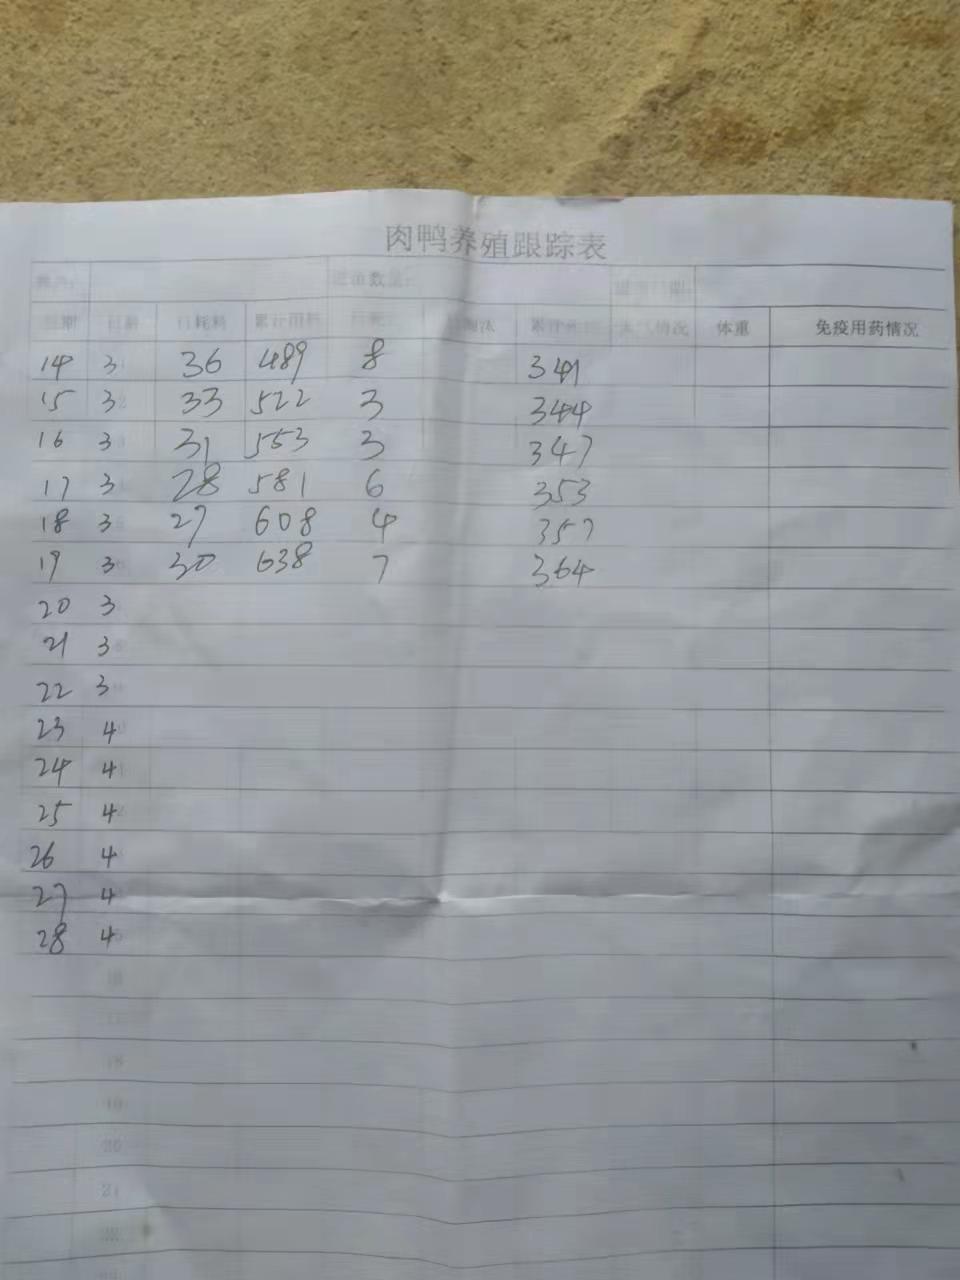 肉鸭养殖跟踪表
进苗数量:
日期 日龄 日耗料 累计用料 日死 淘汰 累计死 天气情况 体重 免疫用药情况
14 3 36 489 8 341
15 3 33 522 3 344
16 3 31 553 3 347
17 3 28 581 6 353
18 3 27 608 4 357
19 3 30 638 7 364
20 3
21 3
22 3
23 4
24 4
25 4
26 4
27 4
28 4
18
19
20
21
22